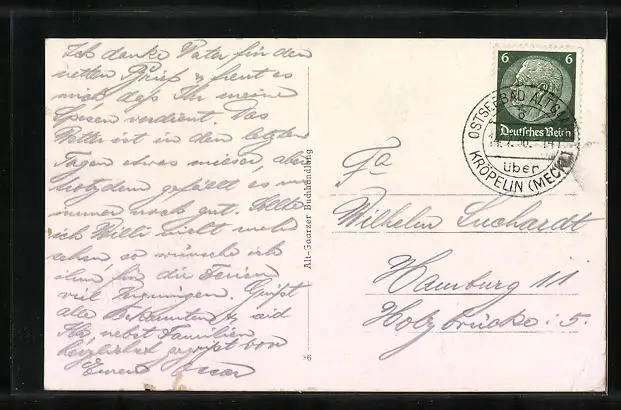 Ich danke Vater für den
netten Brief & freut es
mich daß Ihr meine
Spesen verdient. Das
Wetter ist in den letzten
Tagen etwas mieser, aber
trotzdem gefällt es mir
immer noch gut. Sollte
ich Willi nicht mehr
sehen, so wünsche ich
ihm, für die Ferien
viel Vergnügen. Grüßt
alle Bekannten & seid
Ihr nebst Familien
herzlichst gegrüßt von
Eurem
Alt-Gaarzer Buchhandlung
96
6 6
Deutsches Reich
OSTSEEBAD ALT
über
KRÖPELIN (MECK)
Fa
Wilhelm Suchardt
Hamburg 11
Holzbrücke: 5.